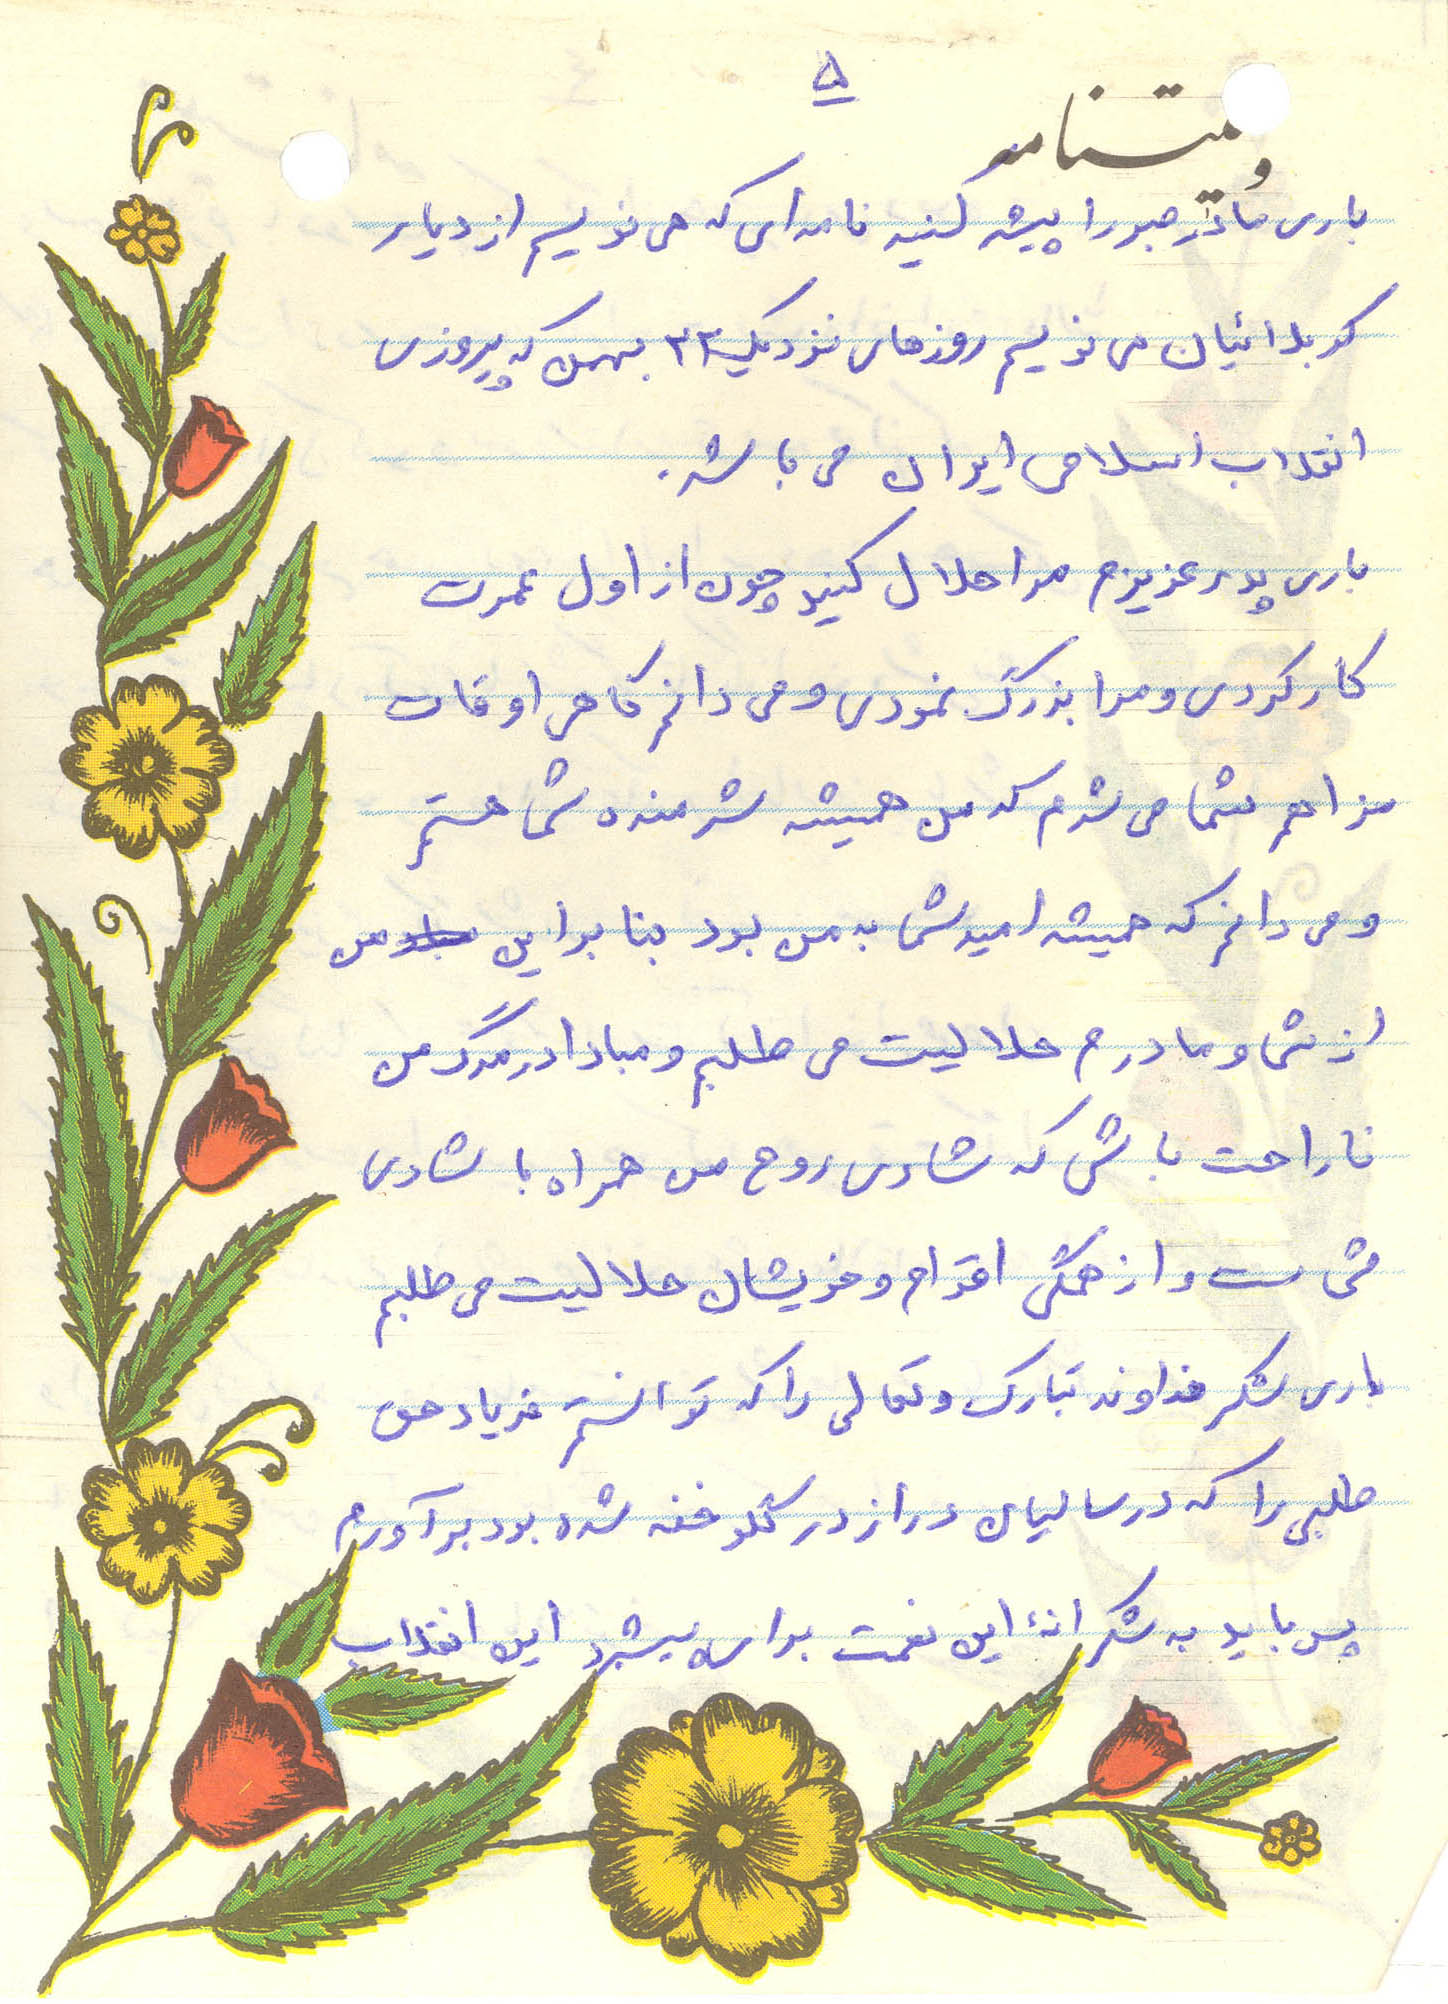 ۵
وصیتنامه
باری مادر صبور را پیشه کنید نامه ای که می نویسم از دیار
کربلائیان می نویسم روزهای نزدیک ۲۲ بهمن که پیروزی
انقلاب اسلامی ایران می باشد.
باری پدر عزیزم مرا حلال کنید چون از اول عمرت
کار کردی و مرا بزرگ نمودی و می دانم گاهی اوقات
مزاحم شما می شدم که من همیشه شرمنده شما هستم
و می دانم که همیشه امید شما به من بود بنا براین من
از شما و مادرم حلالیت می طلبم و مبادا در مرگ من
ناراحت باشی که شادی روح من همراه با شادی
شماست و از همگی اقوام و خویشان حلالیت می طلبم
باری شکر خداوند تبارک وتعالی را که توانستم فریاد حق
طلبی را که در سالیان دراز در گلو خفه شده بود برآورم
پس باید به شکرانۀ این نعمت برای پیشبرد این انقلاب